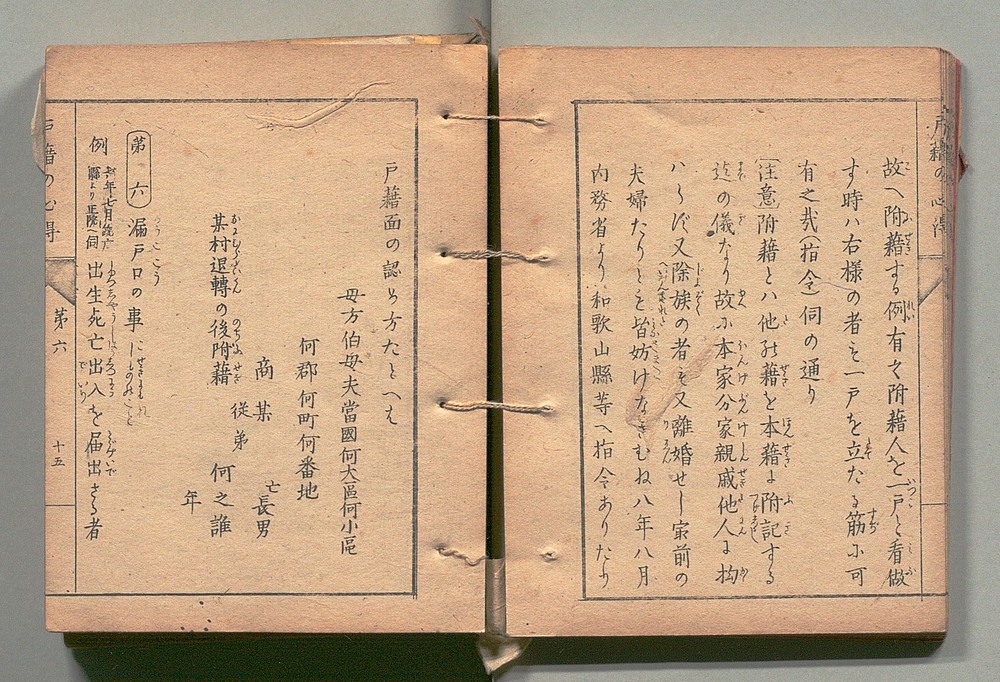 戸籍の心得
故へ附籍する例有之附籍人を一戸と看做
す時ハ右様の者も一戸を立たる筋ニ可
有之哉(指令)伺の通り
(注意)附籍とハ他の籍を本籍に附記する
迄の儀なり故ニ本家分家親戚他人に拘
ハらず又除族の者も又離婚せし家前の
夫婦たりとも皆妨けなきむね八年八月
内務省より和歌山縣等へ指令ありたり
戸籍面の認め方たとへば
母方伯母夫當國何大區何小區
何郡何町何番地
商 某 亡長男
某村退轉の後附籍 従弟 何之誰
年
第六 漏戸口の事
例 出生死亡出入を届出ざる者
戸籍の心得 第六 十五